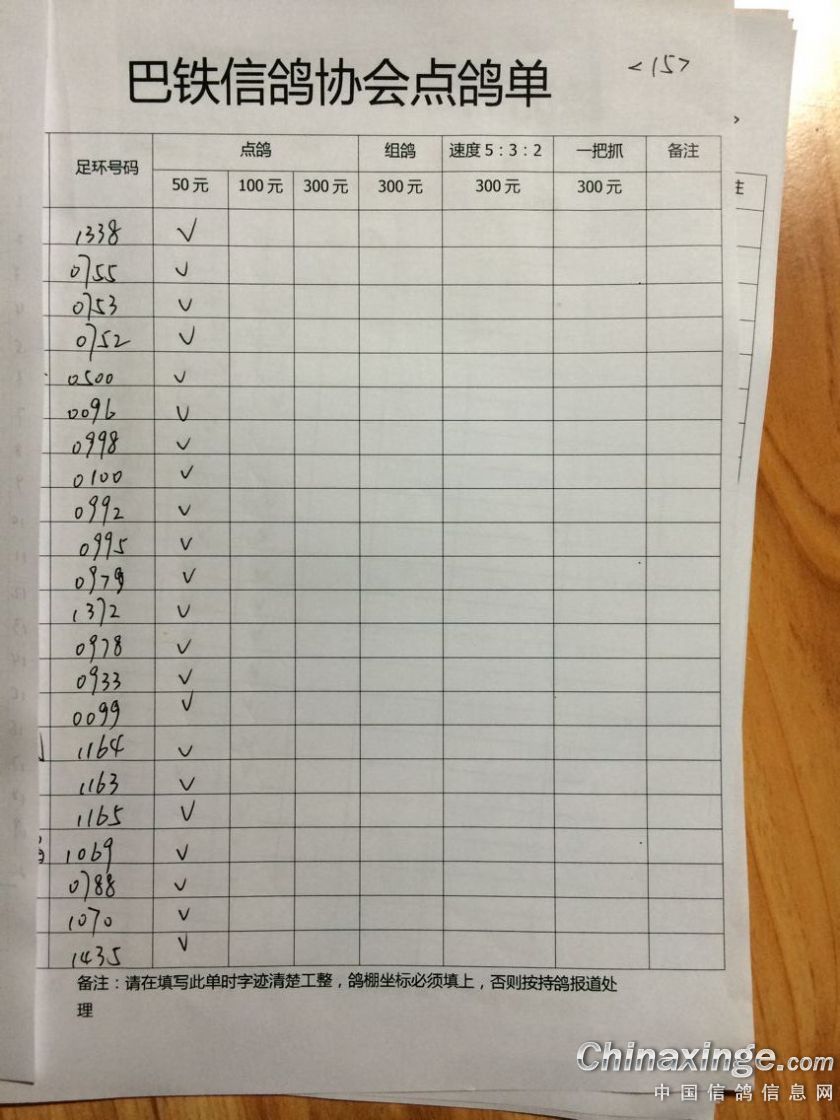 巴铁信鸽协会点鸽单 <15>
足环号码 点鸽 组鸽 速度 5：3：2 一把抓 备注
50 元 100 元 300 元 300 元 300 元 300 元
1338 √
0755 √
0753 √
0752 √
0500 √
0096 √
0998 √
0100 √
0992 √
0995 √
0979 √
1372 √
0978 √
0933 √
0099 √
1164 √
1163 √
1165 √
1069 √
0788 √
1070 √
1435 √
备注：请在填写此单时字迹清楚工整，鸽棚坐标必须填上，否则按持鸽报道处
理
Chinaxinge.com
中国信鸽信息网